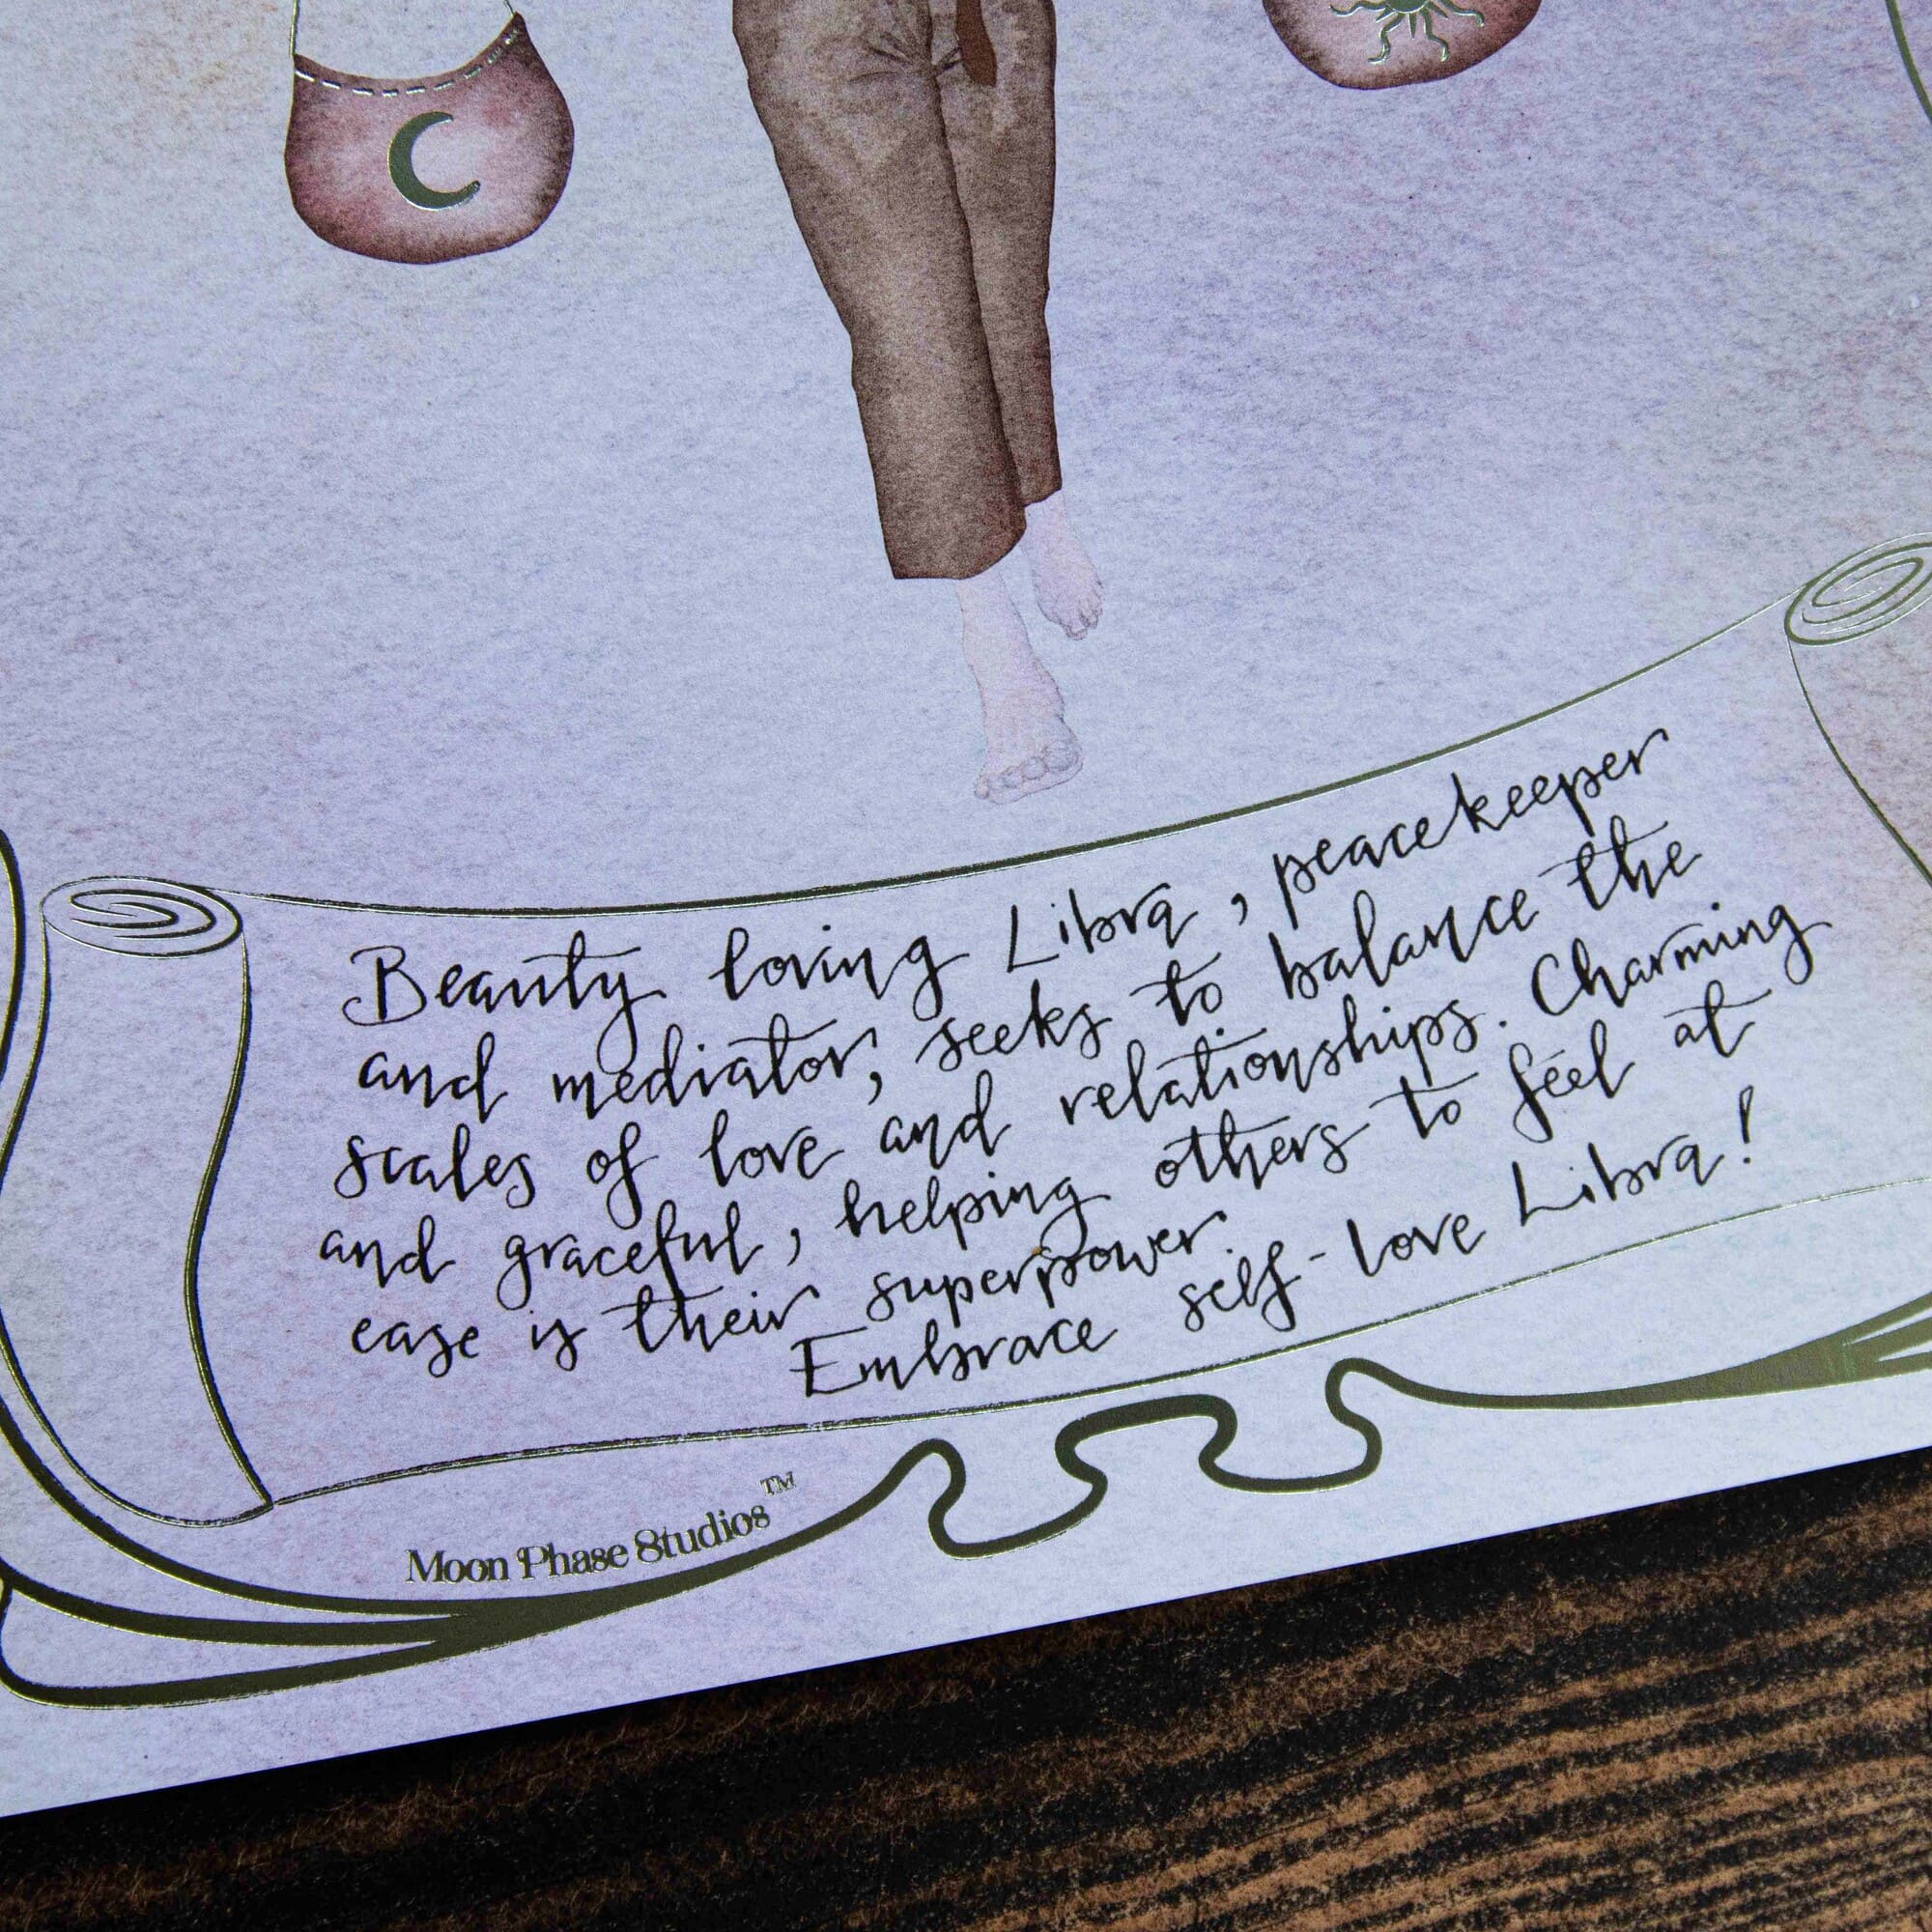 Beauty loving Libra, peacekeeper
and mediator, seeks to balance the
scales of love and relationships. Charming
and graceful, helping others to feel at
ease is their superpower.
Embrace self-love Libra!
Moon Phase Studios™